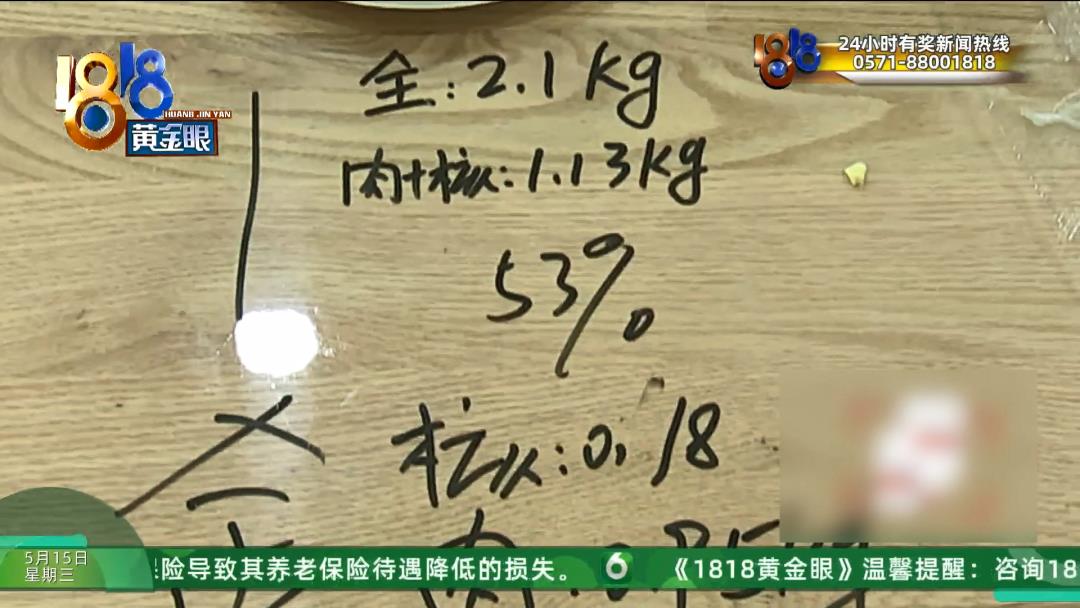 1818
HUANG JIN YAN
黄金眼
1818
24小时有奖新闻热线
0571-88001818
全:2.1kg
肉+核:1.13kg
53%
核:0.18
肉:0.95kg
5月15日
星期三
保险导致其养老保险待遇降低的损失。
6
《1818黄金眼》温馨提醒:咨询18